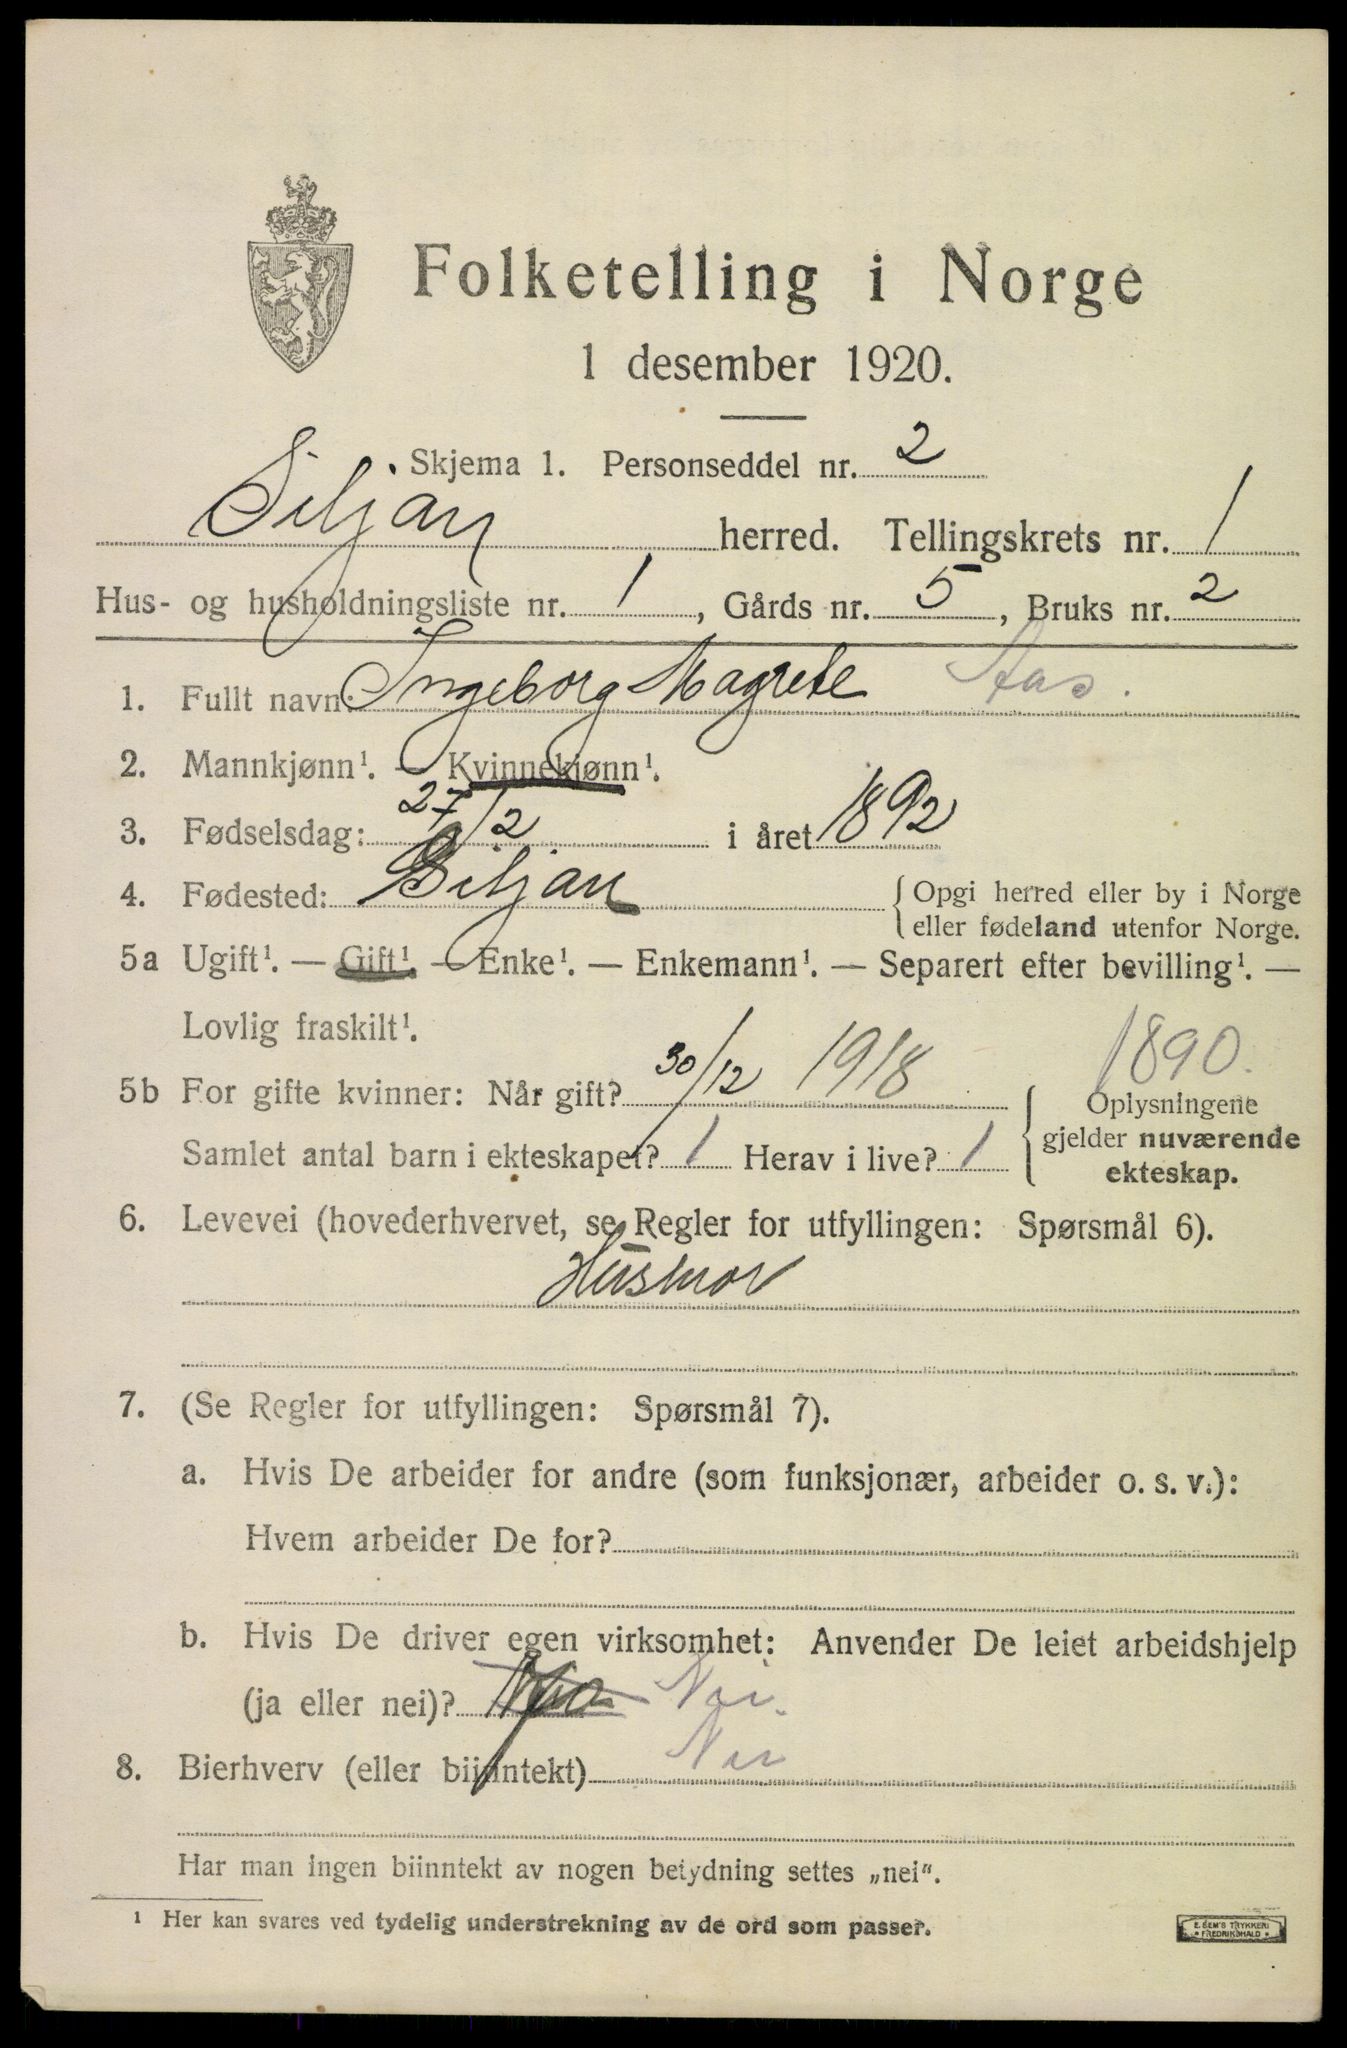 Folketelling i Norge
1 desember 1920.
Skjema 1. Personseddel nr. 2
Siljan herred. Tellingskrets nr. 1
Hus- og husholdningsliste nr. 1, Gårds nr. 5, Bruks nr. 2
1. Fullt navn: Ingeborg Magrete Aas.
2. Mannkjønn¹. — Kvinnekjønn¹.
3. Fødselsdag: 27/2 i året 1892
4. Fødested: Siljan { Opgi herred eller by i Norge
eller fødeland utenfor Norge.
5a Ugift¹. — Gift¹. — Enke¹. — Enkemann¹. — Separert efter bevilling¹. —
Lovlig fraskilt¹.
1890.
5b For gifte kvinner: Når gift? 30/12 1918
Samlet antal barn i ekteskapet? 1 Herav i live? 1
Oplysningene
gjelder nuværende
ekteskap.
6. Levevei (hovederhvervet, se Regler for utfyllingen: Spørsmål 6).
Husmor
7. (Se Regler for utfyllingen: Spørsmål 7).
a. Hvis De arbeider for andre (som funksjonær, arbeider o. s. v.):
Hvem arbeider De for?
b. Hvis De driver egen virksomhet: Anvender De leiet arbeidshjelp
(ja eller nei)? Nei.
8. Bierhverv (eller biinntekt) Nei
Har man ingen biinntekt av nogen betydning settes „nei".
¹ Her kan svares ved tydelig understrekning av de ord som passer.
E. SEM'S TRYKKERI
* FREDRIKSHALD *